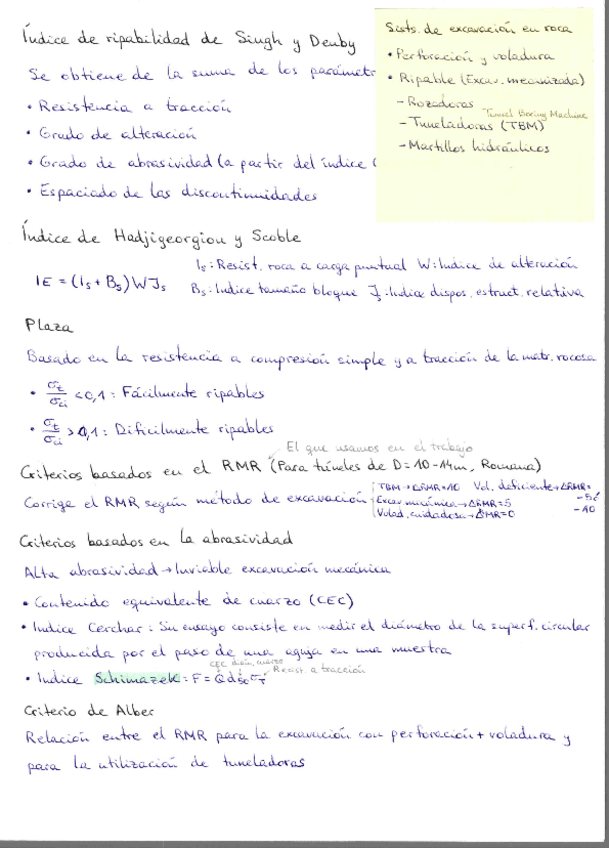 Índice de ripabilidad de Singh y Denby
Se obtiene de la suma de los parámetr
• Resistencia a tracción
• Grado de alteración
• Grado de abrasividad (a partir del índice (
• Espaciado de las discontinuidades
Sists. de excavación en roca
• Perforación y voladura
• Ripable (Excav. mecanizada)
- Rozadoras
Tunnel Boring Machine
- Tuneladoras (TBM)
- Martillos hidráulicos
Índice de Hadjigeorgiou y Scoble
IE = (Is + Bs) W Js
Is: Resist. roca a carga puntual W: Indice de alteración
Bs: Indice tamaño bloque Js: Indice dispos. estruct. relativa
Plaza
Basado en la resistencia a compresión simple y a tracción de la matr. rocosa
• σt/σci < 0,1: Fácilmente ripables
• σt/σci > 0,1: Dificilmente ripables
El que usamos en el trabajo
Criterios basados en el RMR (Para túneles de D=10-14m, Romana)
Corrige el RMR según método de excavación
TBM → ΔRMR=10 Vol. deficiente → ΔRMR=
Excav. mecánica → ΔRMR=5 -5ó
Volad. cuidadosa → ΔRMR=0 -10
Criterios basados en la abrasividad
Alta abrasividad → Inviable excavación mecánica
• Contenido equivalente de cuarzo (CEC)
• Indice Cerchar: Su ensayo consiste en medir el diámetro de la superf. circular
producida por el paso de una aguja en una muestra
CEC diám. cuarzo
• Indice Schimazek: F = Q d50 σt Resist. a tracción
Criterio de Alber
Relación entre el RMR para la excavación con perforación + voladura y
para la utilización de tuneladoras